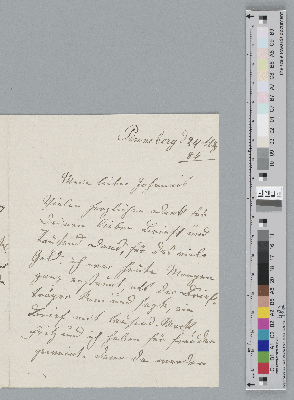 Pinneberg d 24
84
Mein lieber Johannes
Vielen herzlichen dank für
Deinen lieben Brief und
Tausend Dank, für das viele
Geld. ich war heute Morgen
ganz erstaunt als der Brief-
träger kam und sagte, ein
Brief mit tausend Mark
Fritz und ich haben für freuden
geweint, denn da wurden